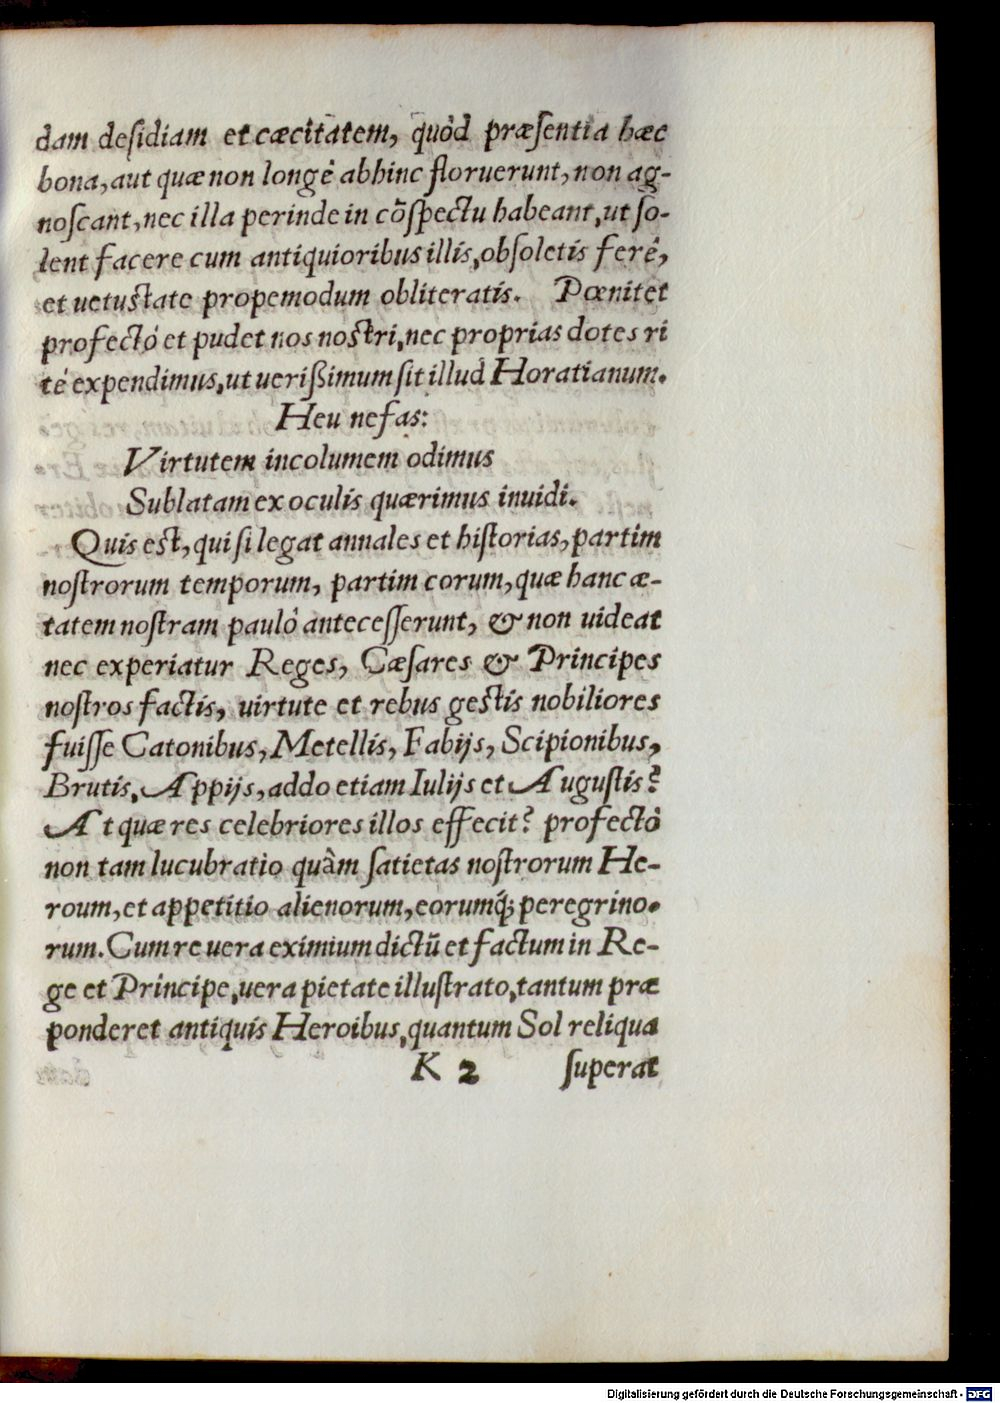 dam desidiam et cæcitatem, quòd præsentia hæc
bona, aut quæ non longè abhinc floruerunt, non ag-
noscant, nec illa perinde in cõspectu habeant, ut so-
lent facere cum antiquioribus illis, obsoletis ferè,
et uetustate propemodum obliteratis. Pœnitet
profectò et pudet nos nostri, nec proprias dotes ri
tè expendimus, ut uerißimum sit illud Horatianum.
Heu nefas:
Virtutem incolumem odimus
Sublatam ex oculis quærimus inuidi.
Quis est, qui si legat annales et historias, partim
nostrorum temporum, partim eorum, quæ hanc æ-
tatem nostram paulò antecesserunt, & non uideat
nec experiatur Reges, Cæsares & Principes
nostros factis, uirtute et rebus gestis nobiliores
fuisse Catonibus, Metellis, Fabijs, Scipionibus,
Brutis, Appijs, addo etiam Iulijs et Augustis?
At quæ res celebriores illos effecit? profectò
non tam lucubratio quàm satietas nostrorum He-
roum, et appetitio alienorum, eorumq́; peregrino-
rum. Cum re uera eximium dictũ et factum in Re-
ge et Principe, uera pietate illustrato, tantum præ
ponderet antiquis Heroibus, quantum Sol reliqua
K 2 superat
Digitalisierung gefördert durch die Deutsche Forschungsgemeinschaft - DFG